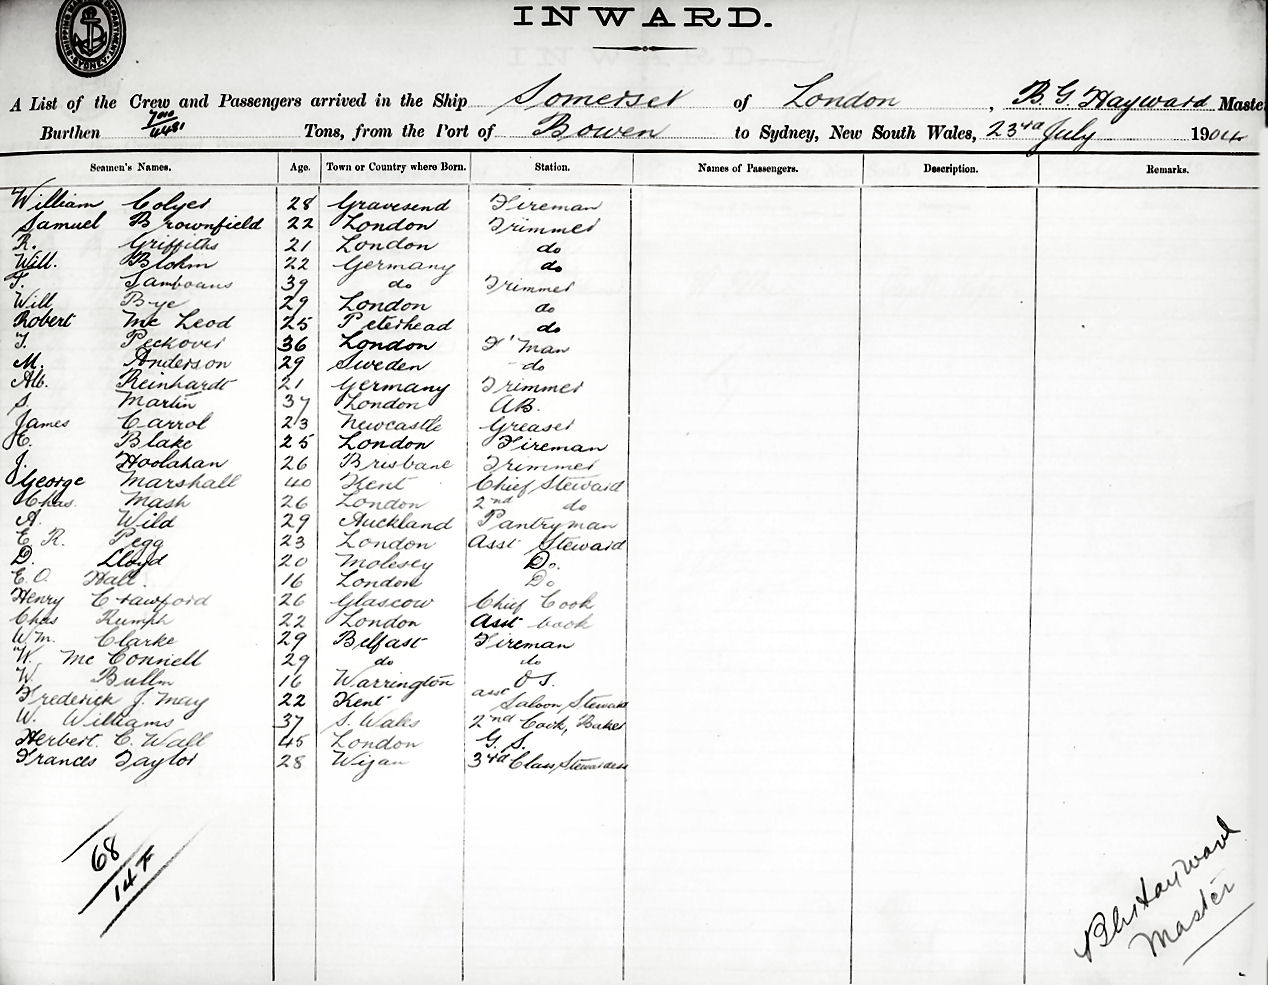 INWARD.
A List of the Crew and Passengers arrived in the Ship Somerset of London, B. G. Hayward Master
Burthen Tons, from the Port of Bowen to Sydney, New South Wales, 23rd July 1904
Seamen's Names. Age. Town or Country where Born. Station. Names of Passengers. Description. Remarks.
William Colyer 28 Gravesend Fireman
Samuel Brownfield 22 London Trimmer
R. Griffiths 21 London do
Will. Blohm 22 Germany do
39 do Trimmer
Will Bye 29 London do
Robert Mc Leod 25 Peterhead do
T. Peckover 36 London F'Man
M. Anderson 29 Sweden do
Alb. Reinhardt 21 Germany Trimmer
S. Martin 37 London AB.
James Carrol 23 Newcastle Greaser
C. Blake 25 London Fireman
J. Hoolahan 26 Brisbane Trimmer
George Marshall 40 Kent Chief Steward
Chas. Mash 26 London 2nd do
A. Wild 29 Auckland Pantryman
E R. Pegg 23 London Asst Steward
D. Lloyd 20 Molesey Do.
E. O. Hall. 16 London Do
Henry Crawford 26 Glascow Chief Cook
Chas Rumph 22 London Asst Cook
Wm. Clarke 29 Belfast Fireman
W. Mc Connell 29 do do
W. Bullm 16 Warrington O S.
Frederick J. May 22 Kent asst Saloon Steward
W. Williams 37 S. Wales 2nd Cook, Baker
Herbert C. Wall 45 London G. S.
Frances Taylor 28 Wigan 3rd Class Stewardess
68
14 F
Hayward
Master